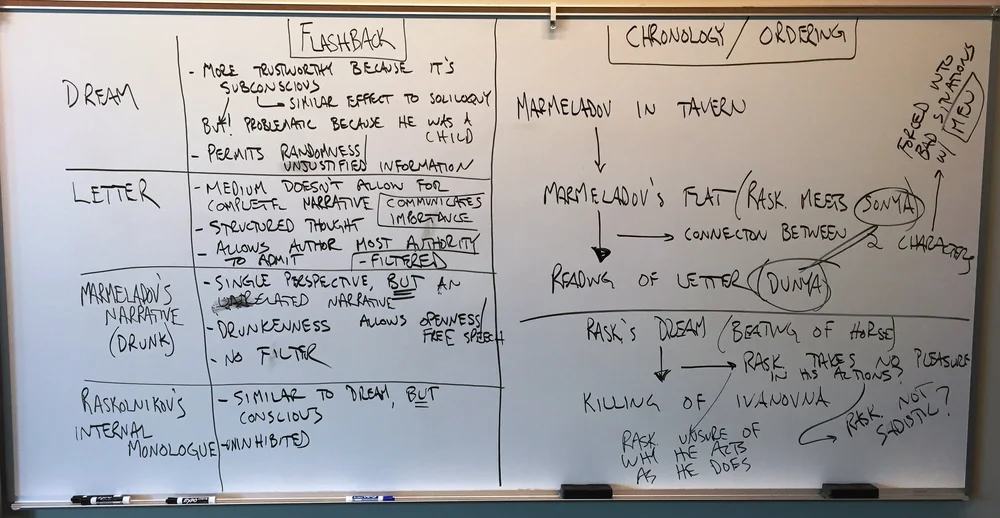 FLASHBACK
DREAM
- MORE TRUSTWORTHY BECAUSE IT'S
SUBCONSCIOUS
SIMILAR EFFECT TO SOLILOQUY
BUT! PROBLEMATIC BECAUSE HE WAS A
CHILD
- PERMITS RANDOMNESS/
UNJUSTIFIED INFORMATION
LETTER
- MEDIUM DOESN'T ALLOW FOR
COMPLETE NARRATIVE
COMMUNICATES
IMPORTANCE
- STRUCTURED THOUGHT
- ALLOWS AUTHOR MOST AUTHORITY
TO ADMIT
- FILTERED
MARMELADOV'S
NARRATIVE
(DRUNK)
- SINGLE PERSPECTIVE, BUT AN
RELATED NARRATIVE
- DRUNKENNESS ALLOWS OPENNESS/
FREE SPEECH
- NO FILTER
RASKOLNIKOV'S
INTERNAL
MONOLOGUE
- SIMILAR TO DREAM, BUT
CONSCIOUS
- UNINHIBITED
CHRONOLOGY / ORDERING
MARMELADOV IN TAVERN
MARMELADOV'S FLAT (RASK. MEETS SONYA)
CONNECTON BETWEEN 2 CHARACTERS
FORCED INTO
BAD SITUATIONS
W/ MEN
READING OF LETTER (DUNYA)
RASK'S DREAM (BEATING OF HORSE)
RASK TAKES NO PLEASURE
IN HIS ACTIONS?
KILLING OF IVANOVNA
RASK NOT
SADISTIC?
RASK UNSURE OF
WHY HE ACTS
AS HE DOES
EXPO